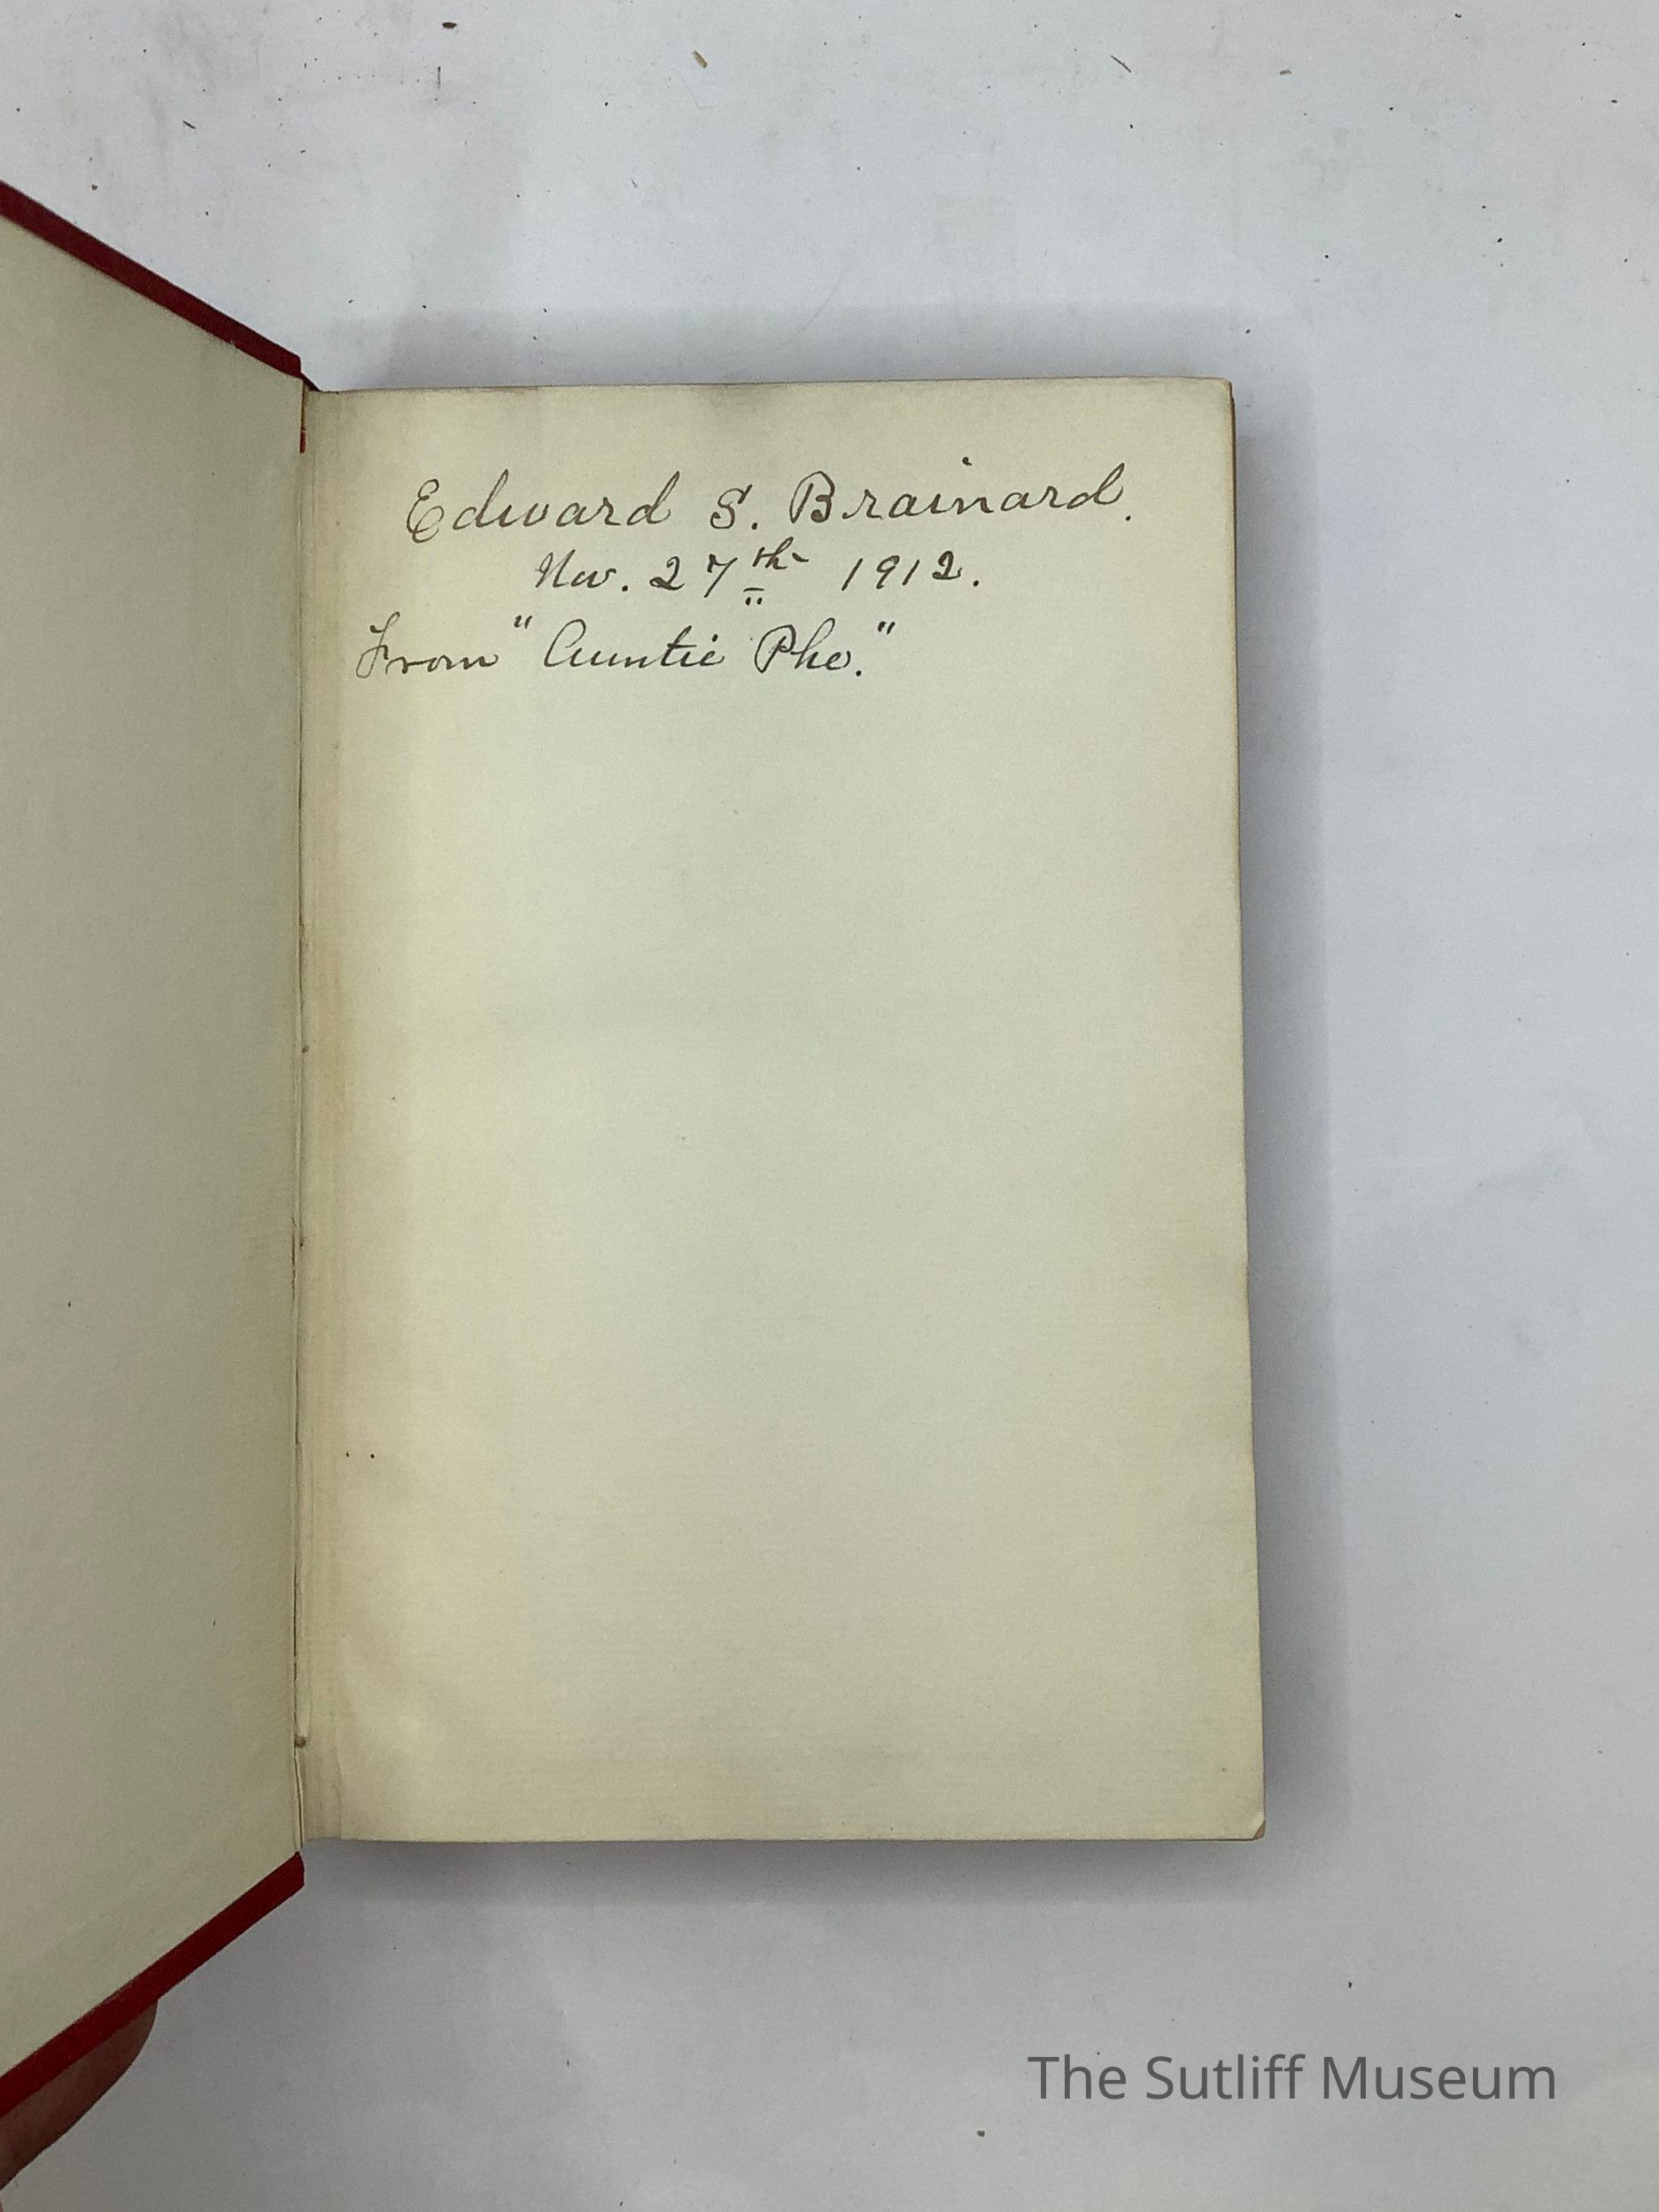 Edward S. Brainard.
Nov. 27th 1912.
From "Auntie Phe."
The Sutliff Museum